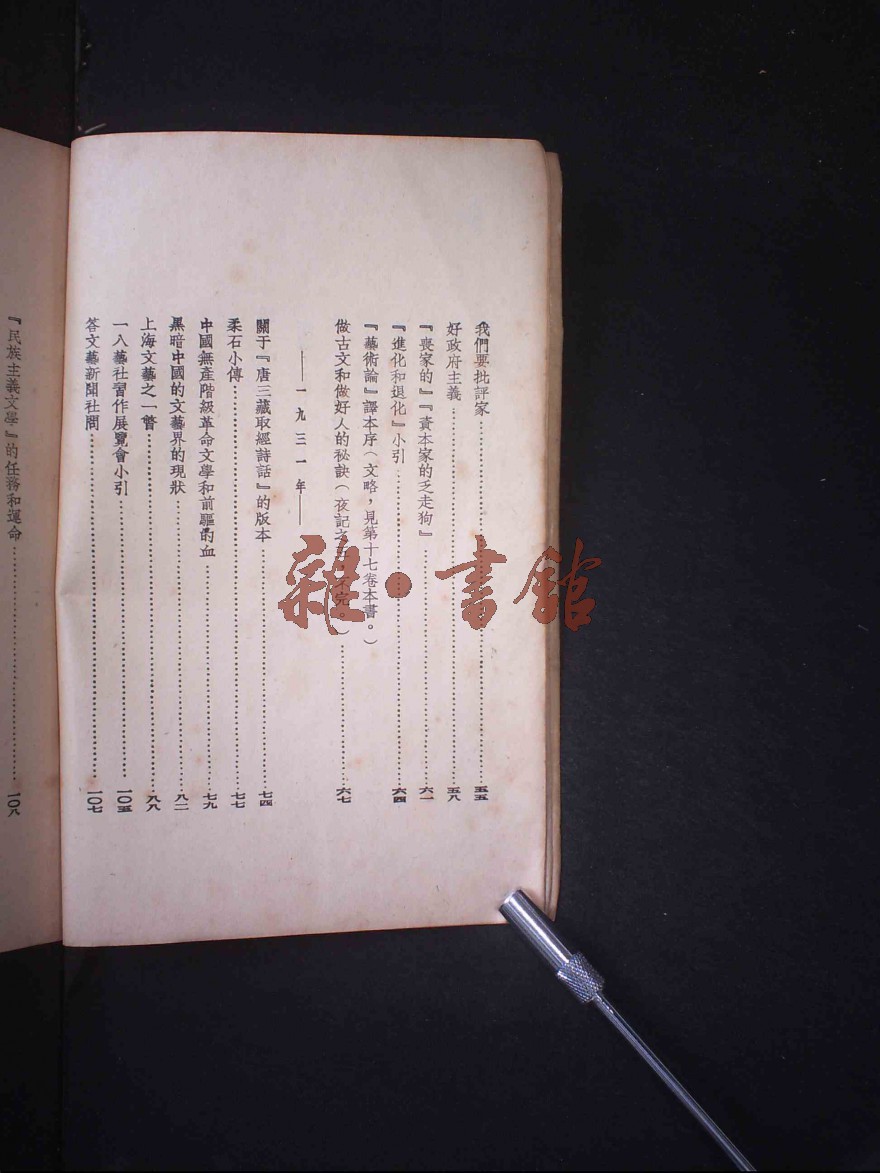 我們要批評家……五五
好政府主義……五八
『喪家的』『資本家的乏走狗』……六一
『進化和退化』小引……六四
『藝術論』譯本序(文略，見第十七卷本書。)
做古文和做好人的秘訣(夜記之 不完。)……六七
——一九三一年——
關于『唐三藏取經詩話』的版本……七四
柔石小傳……七七
中國無產階級革命文學和前驅的血……七九
黑暗中國的文藝界的現狀……八二
上海文藝之一瞥……八八
一八藝社習作展覽會小引……一〇五
答文藝新聞社問……一〇七
『民族主義文學』的任務和運命……一〇八
雜·書館